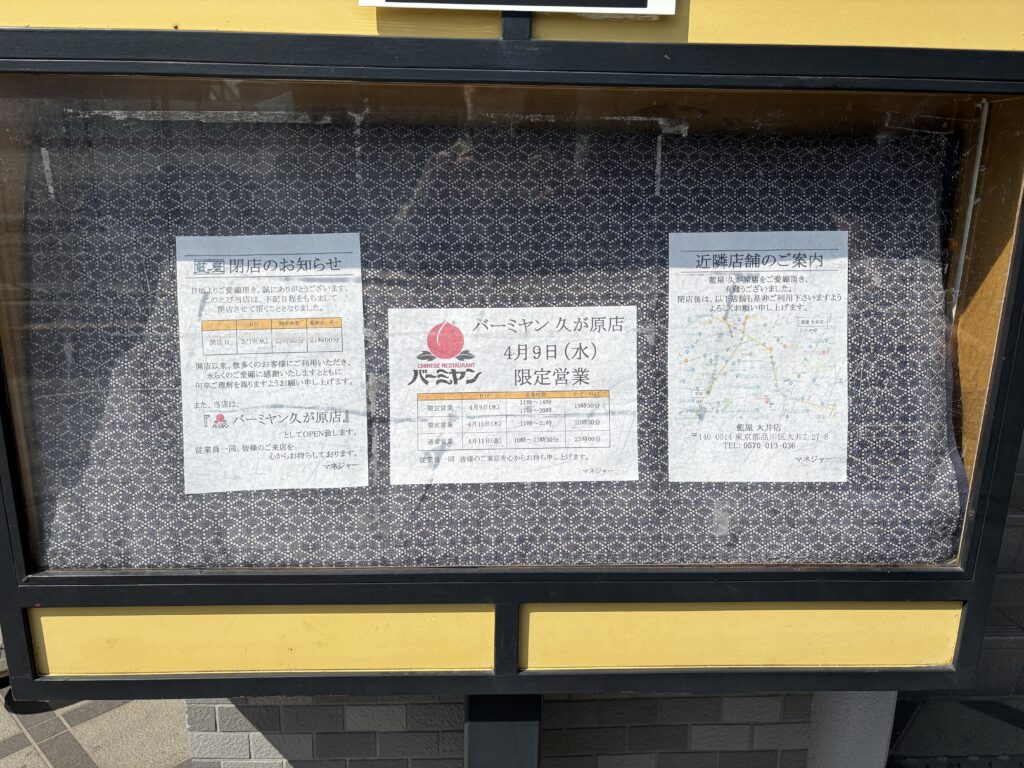 藍屋 閉店のお知らせ
日頃よりご愛顧頂き、誠にありがとうございます。
このたび当店は、下記日程をもちまして
閉店させて頂くこととなりました。
日付 閉店時間
閉店日 3/19(水) 22時00分 21時00分
開店以来、数多くのお客様にご利用いただき、
永らくのご愛顧に感謝いたしますとともに
何卒ご理解を賜りますようお願い申し上げます。
また、当店は、
『バーミヤン久が原店』
としてOPEN致します。
従業員一同、皆様のご来店を
心からお待ちしております。
マネジャー
CHINESE RESTAURANT
バーミヤン
バーミヤン 久が原店
4月9日(水)
限定営業
日付 営業時間
限定営業 4月9日(水) 11時~14時 17時~20時 19時30分
限定営業 4月10日(木) 11時~21時 20時30分
通常営業 4月11日(金) 10時~23時30分 23時00分
従業員一同 皆様のご来店を心からお待ち申し上げます。
マネジャー
近隣店舗のご案内
藍屋 久が原店をご愛顧頂き、
有難うございました。
閉店後は、以下店舗も是非ご利用下さいますよう
よろしくお願い申し上げます。
藍屋 大井店
〒140-0014 東京都品川区大井7-27-8
TEL: 0570-013-036
マネジャー